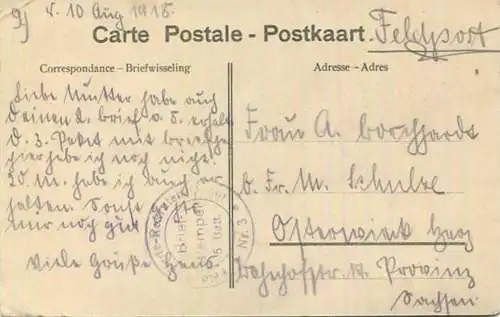 9) v. 10 Aug 1918.
Carte Postale - Postkaart.
Feldpost
Correspondance – Briefwisseling
Adresse – Adres
Liebe Mutter habe auch
Deinen l. Brief v. 5. erhalt
D. 3. Paket mit
hier habe ich noch nicht.
20 M. habe ich auch er
halten. Sonst
nur noch gut
Viele Grüße Hans
Frau A. Borchhardt
b. Fr. M. Schulze
Osterwieck Harz
Bahnhofstr. Provinz
Sachsen
Brief
stempel
Nr. 3